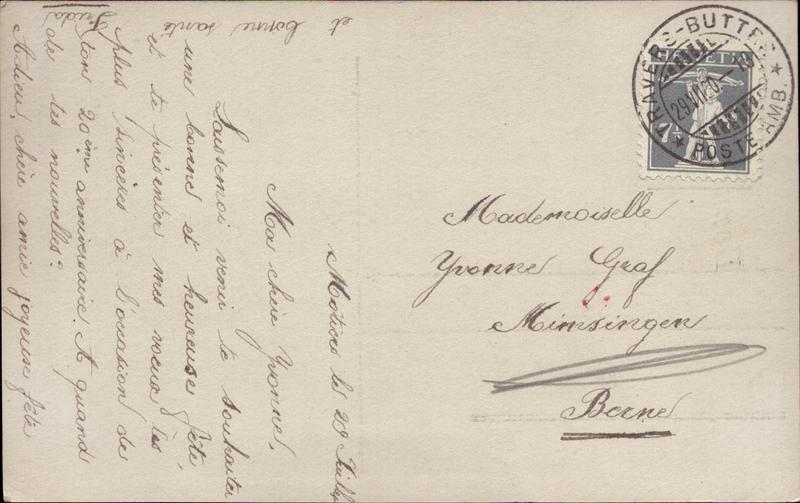 Môtiers le 28 Juillet
Ma chère Yvonne,
Laissemoi venir te souhaiter
une bonne et heureuse fête,
et te présenter mes voeux les
plus sincères à l'occasion de
ton 20ème anniversaire. A quand
de tes nouvelles?
Adieu, chère amie joyeuse fête
et bonne santé
Frida
TRAVERS-BUTTES
29.VII.20.-19
POSTE AMB.
HELVETIA
7½
Mademoiselle
Yvonne Graf
Münsingen
Berne